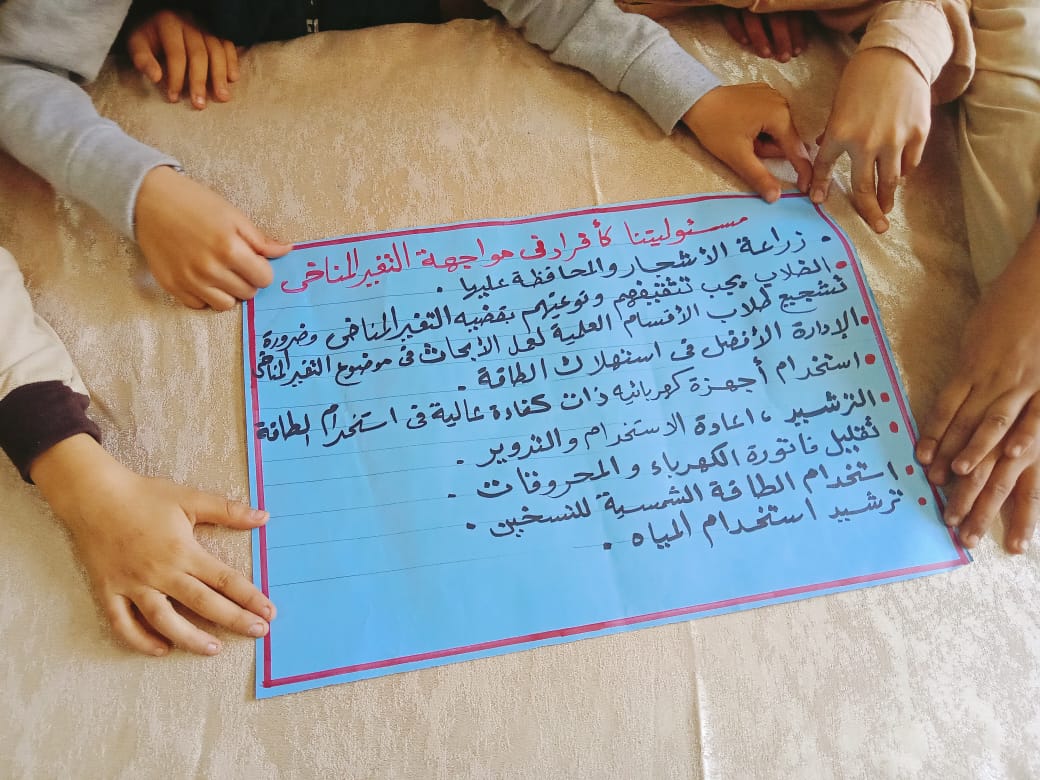 مسئوليتنا كأفراد في مواجهة التغير المناخى
• زراعة الأشجار والمحافظة عليها .
• الطلاب يجب تثقيفهم وتوعيتهم بقضيه التغير المناخى وضرورة
تشجيع طلاب الأقسام العلمية لعمل الأبحاث فى موضوع التغير المناخى
• الإدارة الأفضل فى استهلاك الطاقة .
• استخدام أجهزة كهربائيه ذات كفاءة عالية فى استخدام الطاقة
• الترشيد ، اعادة الاستخدام والتدوير .
• تقليل فاتورة الكهرباء والمحروقات .
• استخدام الطاقة الشمسية للتسخين .
• ترشيد استخدام المياه .